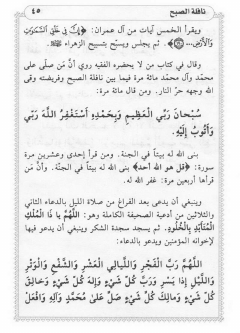 نافلة الصبح
٤٥
ويقرأ الخمس آيات من آل عمران: ﴿إِنَّ فِي خَلْقِ السَّمَوَاتِ
وَالْأَرْضِ...﴾. ثم يجلس ويسبّح بتسبيح الزهراء
وقال في كتاب من لا يحضره الفقيه روي أنّ من صلّى على
محمّد وآل محمّد مائة مرة فيما بين نافلة الصبح وفريضته وقى
الله وجهه حرّ النار. ومن قال مائة مرة:
سُبْحَانَ رَبِّيَ الْعَظِيمِ وَبِحَمْدِهِ أَسْتَغْفِرُ اللَّهَ رَبِّي
وَأَتُوبُ إِلَيْهِ.
بنى الله له بيتاً في الجنة. ومن قرأ إحدى وعشرين مرة
سورة: ﴿قل هو الله أحد﴾ بنى الله له بيتاً في الجنّة. وأنّ من
قرأها أربعين مرة: غفر الله له.
وينبغي أن يدعى بعد الفراغ من صلاة الليل بالدعاء الثاني
والثلاثين من أدعية الصحيفة الكاملة وهو: اللَّهُمَّ يا ذَا الْمُلْكِ
الْمُتَأَبِّدِ بِالْخُلُودِ. ثم يسجد سجدة الشكر وينبغي أن يدعو فيها
لإخوانه المؤمنين ويدعو بالدعاء:
اللَّهُمَّ رَبَّ الْفَجْرِ وَاللَّيَالِي الْعَشْرِ وَالشَّفْعِ وَالْوَتْرِ
وَاللَّيْلِ إِذَا يَسْرِ وَرَبَّ كُلِّ شَيْءٍ وَإِلَهَ كُلِّ شَيْءٍ وَخَالِقَ
كُلِّ شَيْءٍ وَمَالِكَ كُلِّ شَيْءٍ صَلِّ عَلَىٰ مُحَمَّدٍ وَآلِهِ وَافْعَلْ